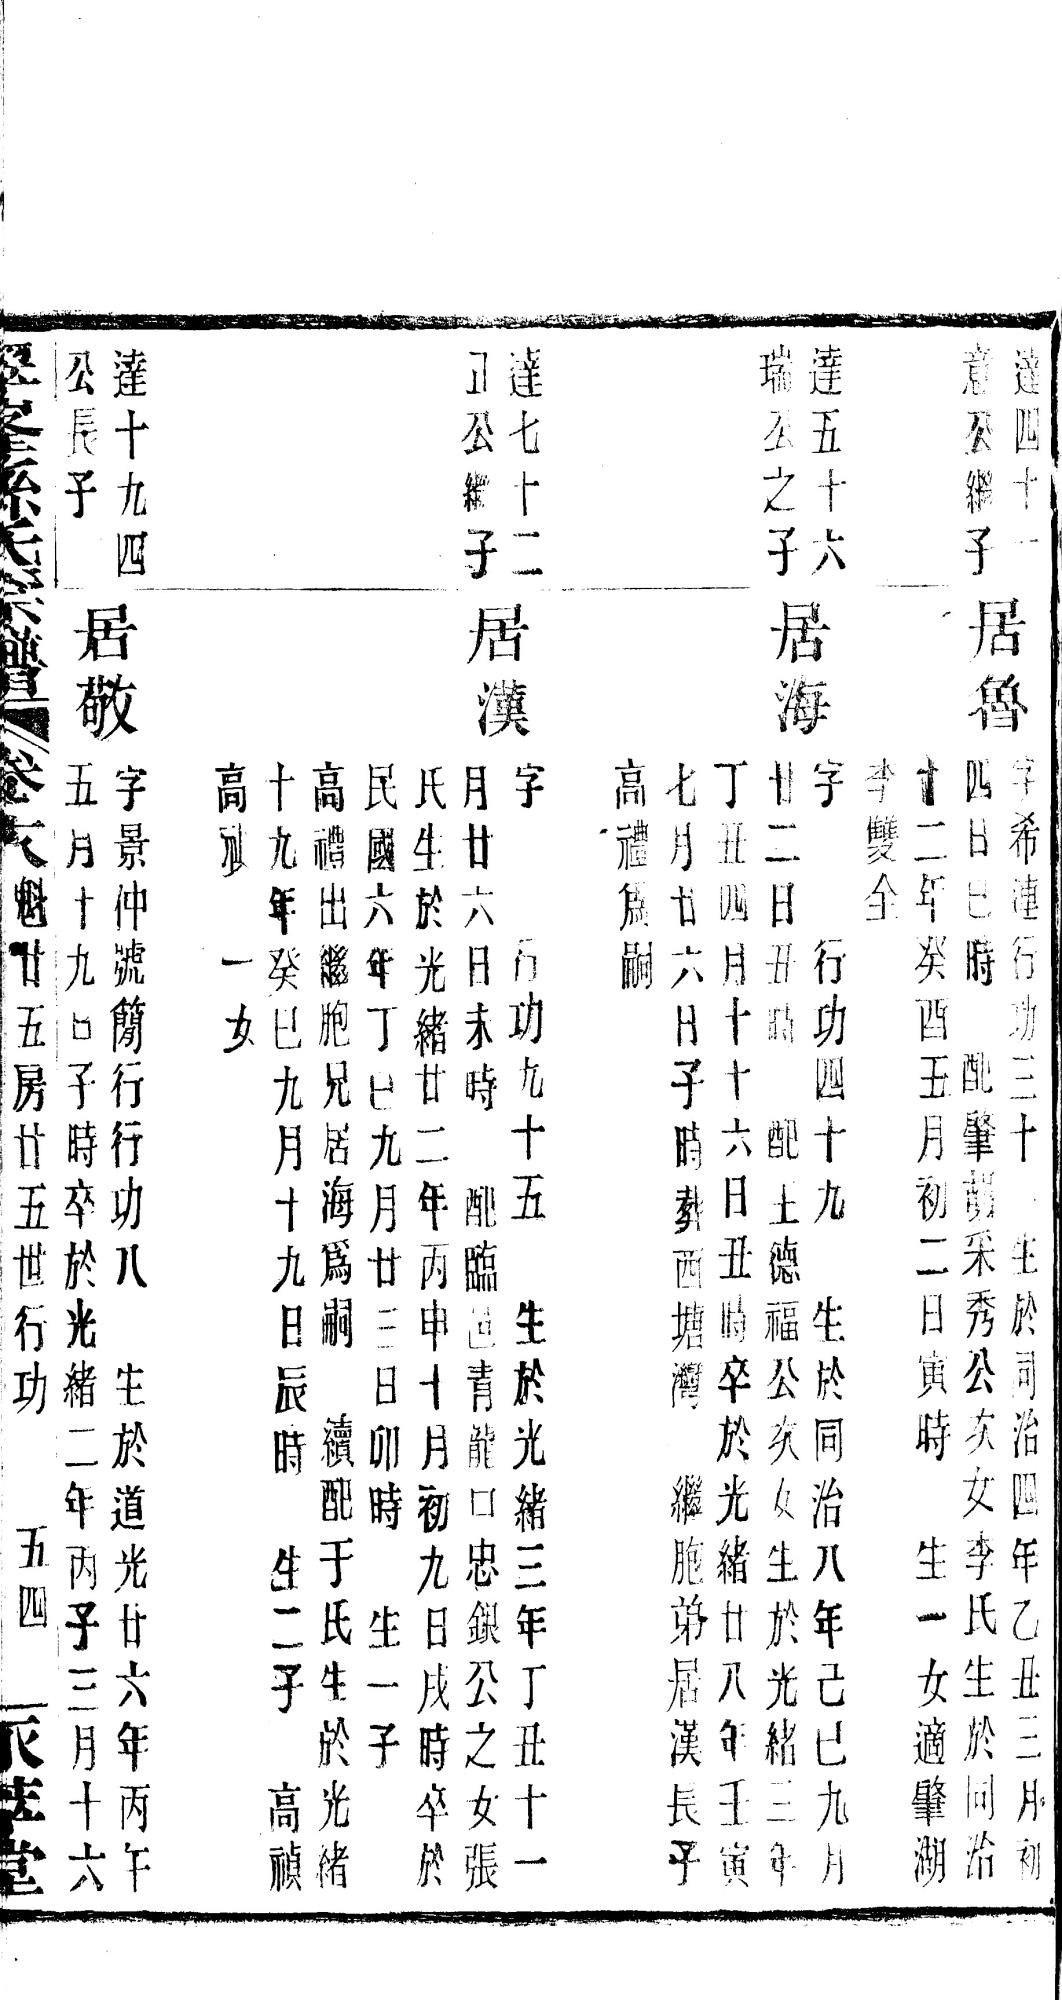 達四十一
意公繼子
居魯
字希漣行功三十一生於同治四年乙丑三月初
四日巳時 配肇胡采秀公次女李氏生於同治
十二年癸酉五月初二日寅時 生一女適肇湖
李雙全
達五十六
瑞公之子
居海
字 行功四十九 生於同治八年己巳九月
廿二日丑時 配土德福公次女生於光緒三年
丁丑四月十十六日丑時卒於光緒廿八年壬寅
七月廿六日子時葬西塘灣 繼胞弟居漢長子
高禮爲嗣
達七十二
公繼子
居漢
字 行功九十五 生於光緒三年丁丑十一
月廿六日未時 配臨邑青龍口忠銀公之女張
氏生於光緒廿二年丙申十月初九日戌時卒於
民國六年丁巳九月廿三日卯時 生一子
高禮出繼胞兄居海爲嗣 續配于氏生於光緒
十九年癸巳九月十九日辰時 生二子 高禎
高 一女
達十九四
公長子
居敬
字景仲號簡行行功八 生於道光廿六年丙午
五月十九日子時卒於光緒二年丙子三月十六
孫氏宗譜 卷 魁廿五房廿五世行功 五四 堂